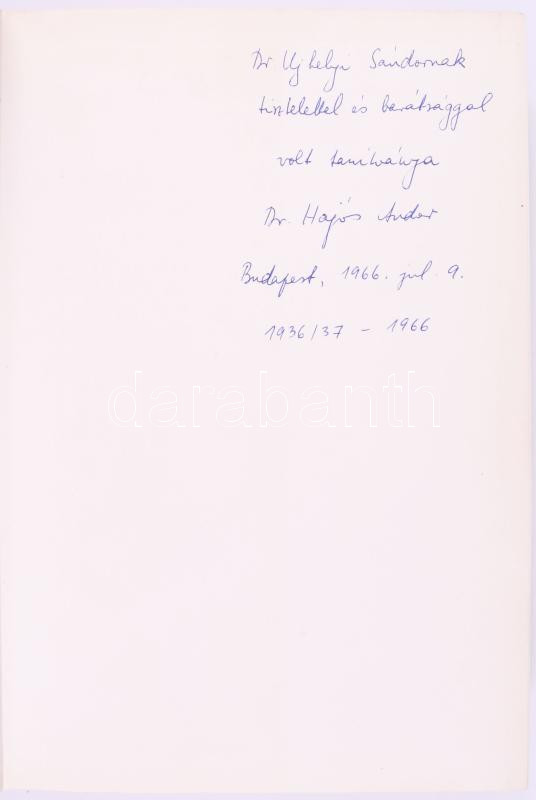 Dr Ujhelyi Sándornak
tisztelettel és barátsággal
volt tanítványa
Dr. Hajós Andor
Budapest, 1966. jul. 9.
1936/37 - 1966
darabanth